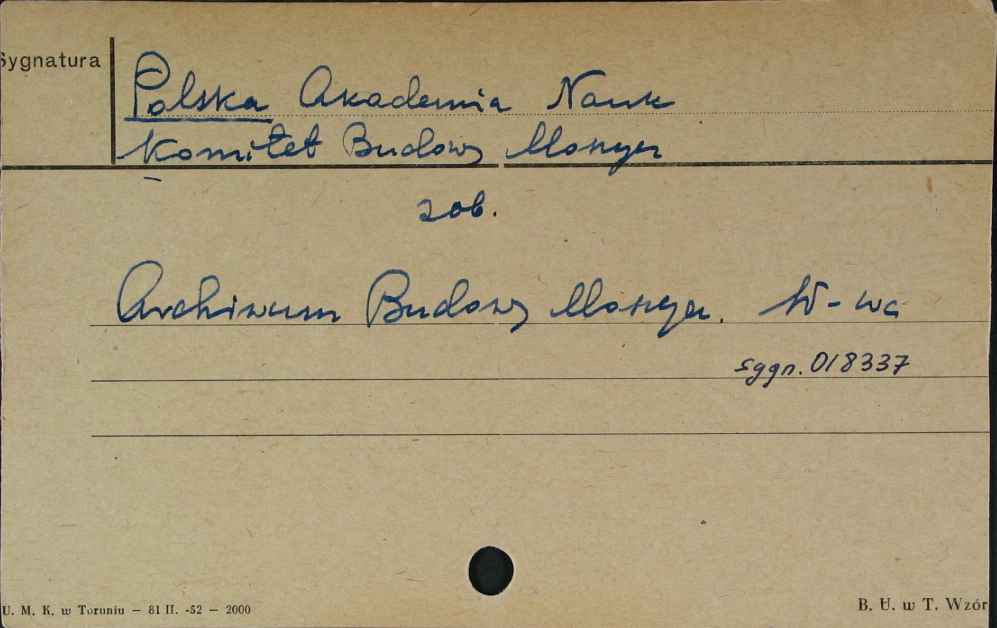 Sygnatura
Polska Akademia Nauk
Komitet Budowy Maszyn
zob.
Archiwum Budowy Maszyn. W-wa
sygn. 018337
U. M. K. w Toruniu — 81 II. -52 — 2000
B. U. w T. Wzór